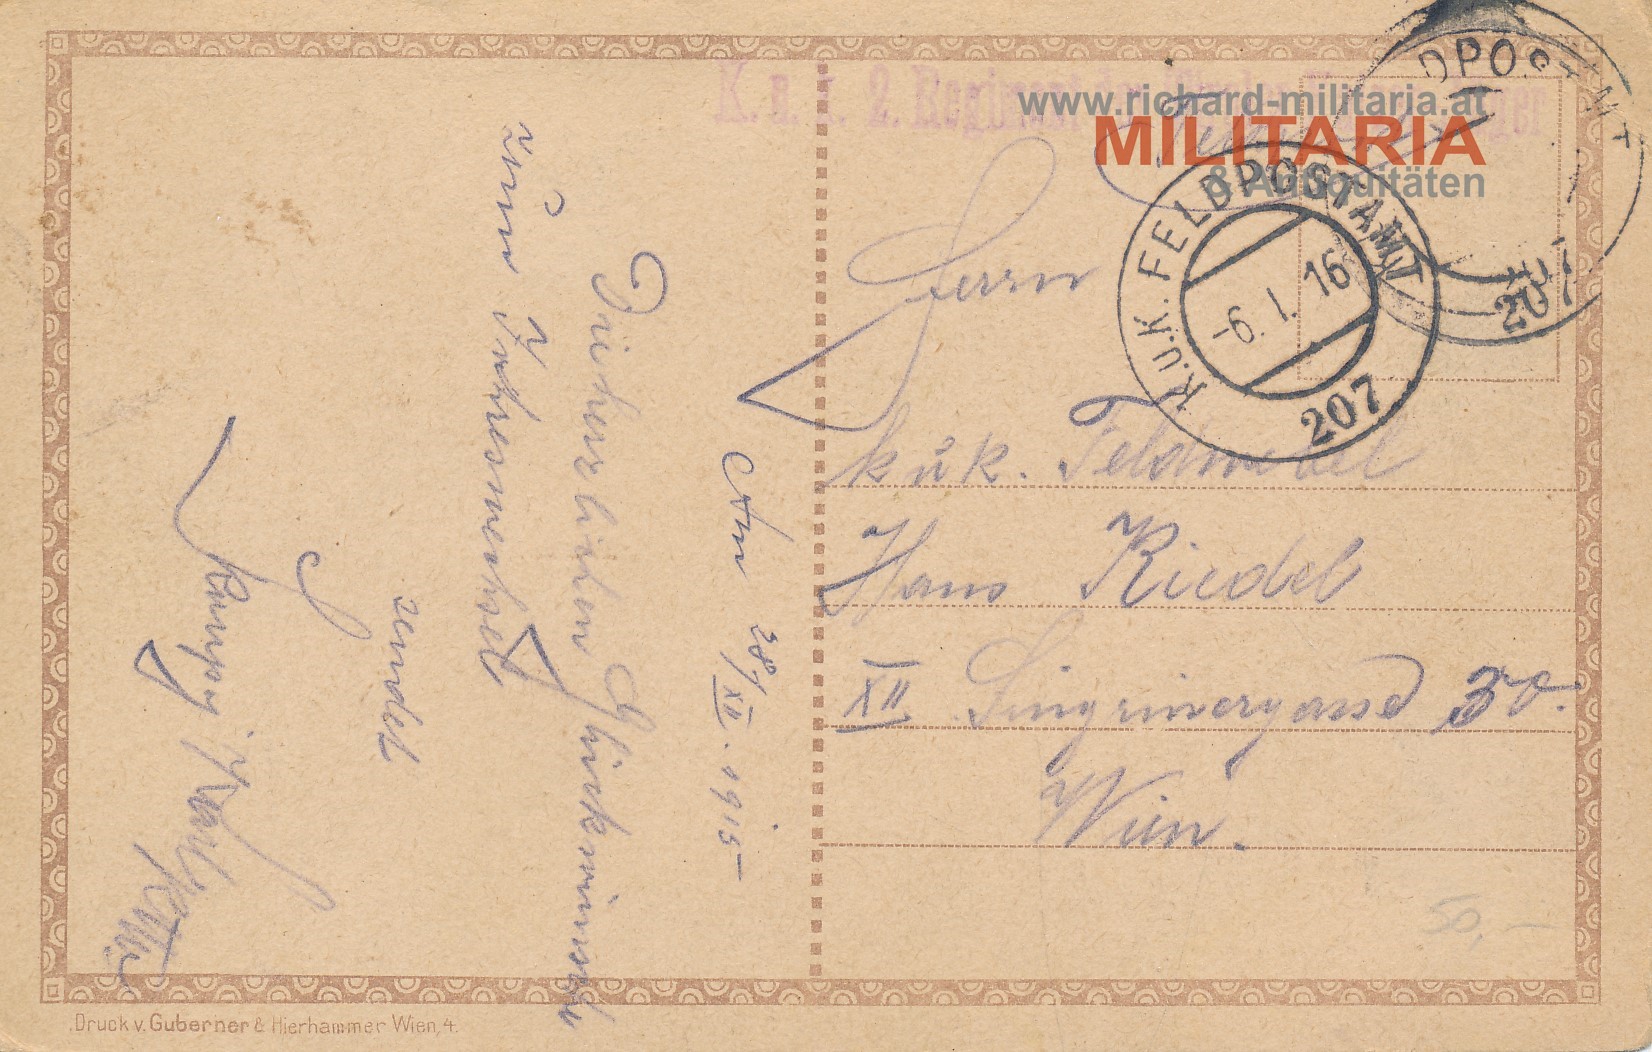 K. u. k. 2. Regiment der Tiroler
www.richard-militaria.at
MILITARIA
& Antiquitäten
K.u.K. FELDPOSTAMT
-6. I. 16
207
DPOSTAMT
207
Herrn
k u k. Feldwebel
Hans Riedel
XII Singrinergasse 30.
Wien.
50,-
Am 28/XII. 1915
Die herzlichsten Glückwünsche
zum Jahreswechsel
sendet
Karl
Druck v. Guberner & Hierhammer Wien, 4.